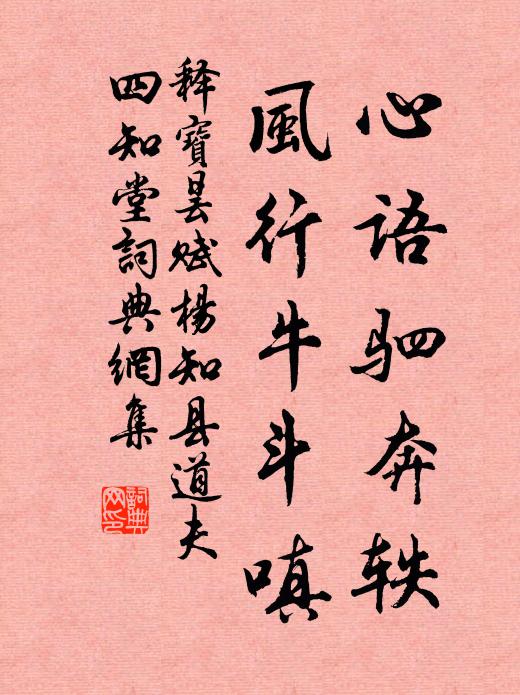 心语驷奔轶
風行牛斗嗔
释寶昙赋楊知县道夫
四知堂詞典網集
詞典网印